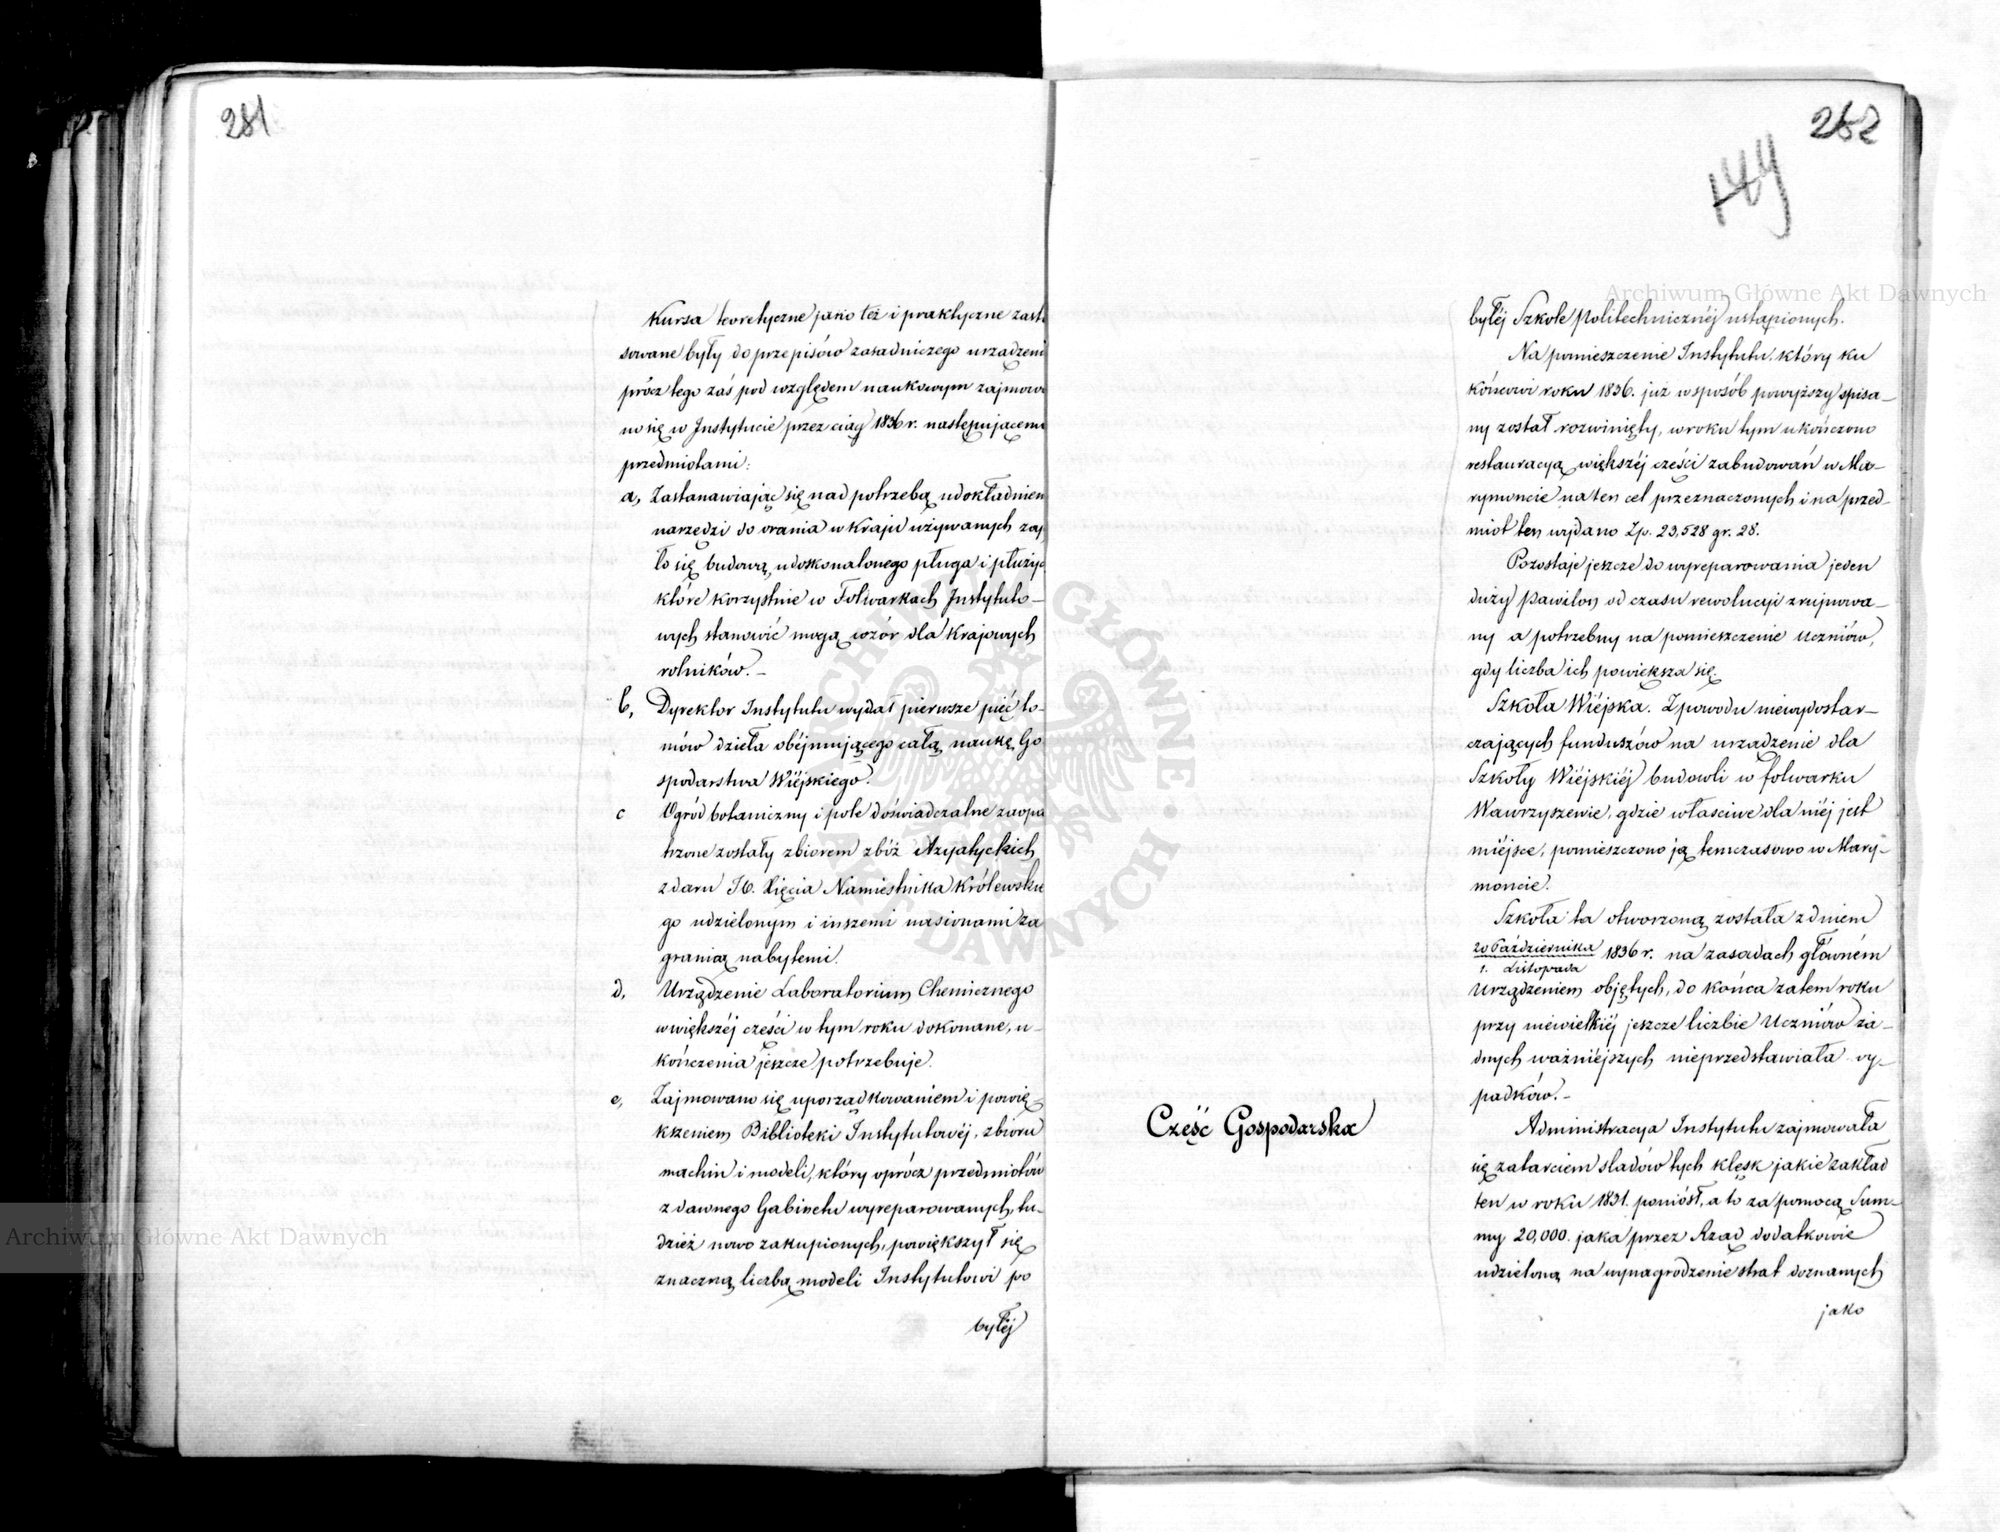 281
Kursa teoretyczne jako też i praktyczne zasto
sowane były do przepisów zasadniczego urządzeni
prócz tego zaś pod względem naukowym zajmowa
no się w Instytucie przez ciąg 1836 r. następującemi
przedmiotami:
a, Zastanawiając się nad potrzebą udokładnien
narzędzi do orania w kraju używanych zaję
to się budową udoskonalonego pługa i płużyc
które korzystnie w Folwarkach Instytuto-
wych stanowić mogą wzór dla krajowych
rolników.-
b, Dyrektor Instytutu wydał pierwsze pięć to-
mów dzieła obéjmującego całą naukę Go
spodarstwa Wiéjskiego.
c Ogród botaniczny i pole doświadczalne zaopa
trzone zostały zbiorem zbóż Azyatyckich
z daru JO. Xięcia Namiestnika Królewskie
go udzielonym i inszemi nasionami za
granicą nabytemi.
d, Urządzenie Laboratorium Chemicznego
w większéj części w tym roku dokonane, u-
kończenia jeszcze potrzebuje.
e, Zajmowano się uporządkowaniem i powię-
kszeniem Biblioteki Instytutowéj, zbioru
machin i modeli, który oprócz przedmiotów
z dawnego Gabinetu wyreparowanych, tu-
dzież nowo zakupionych, powiększył się
znaczną liczbą modeli Instytutowi po
byłéj
282
144
byłéj Szkole Politechnicznéj ustąpionych.
Na pomieszczenie Instytutu, który ku
końcowi roku 1836. już w sposób powyższy opisa-
ny został rozwinięty, w roku tym ukończono
restauracyą większéj części zabudowań w Ma-
rymoncie na ten cel przeznaczonych i na przed-
miot ten wydano Zp. 23,528 gr. 28.
Pozostaje jeszcze do wyreparowania jeden
duży Pawilon od czasu rewolucyi zrujnowa-
ny a potrzebny na pomieszczenie Uczniów,
gdy liczba ich powiększa się.
Szkoła Wiéjska. Z powodu niewydostar-
czających funduszów na urządzenie dla
Szkoły Wiéjskiéj budowli w folwarku
Wawrzyszewie, gdzie właściwe dla niéj jest
miéjsce, pomieszczono ją temczasowo w Mary-
moncie.
Szkoła ta otworzoną została z dniem
20 Października
1. Listopada
1836 r. na zasadach główném
Urządzeniem objętych, do końca zatem roku
przy niewielkiéj jeszcze liczbie Uczniów ża-
dnych ważniejszych nieprzedstawiała wy-
padków.-
Część Gospodarska
Administracya Instytutu zajmowała
się zatarciem śladów tych klęsk jakie zakład
ten w roku 1831. poniósł, a to za pomocą Sum-
my 20,000. jaka przez Rząd dodatkowie
udzieloną na wynagrodzenie strat doznanych
jako
Archiwum Główne Akt Dawnych
Archiwum Główne Akt Dawnych
ARCHIWUM GŁÓWNE AKT DAWNYCH